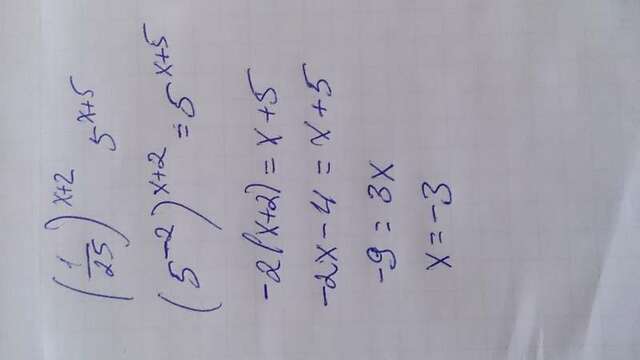 (1/25)^(x+2) 5^(x+5)
(5^(-2))^(x+2) = 5^(x+5)
-2(x+2) = x+5
-2x-4 = x+5
-9 = 3x
x = -3